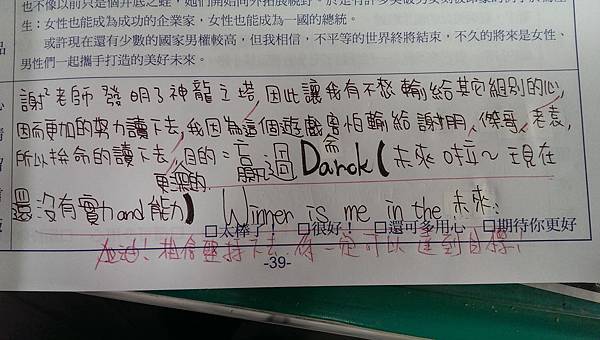 也不像以前只是個井底之蛙，她們開始向外拓展視野。於是有許多突破男女刻板印象的例子於是產
生：女性也能成為成功的企業家，女性也能成為一國的總統。
或許現在還有少數的國家男權較高，但我相信，不平等的世界終將結束，不久的將來是女性、
男性們一起攜手打造的美好未來。
謝²老師發明了神龍之塔，因此讓我有不想輸給其它組別的心，
因而更加的努力讀下去，我因為這個遊戲害怕輸給謝，傑哥，老袁，
所以拚命的讀下去，目的=贏過Darok(未來啦～現在
更深的
而
還沒有實力and能力)　Winner is me in the 未來:
□太棒了！　□很好！　□還可多用心　□期待你更好
加油！相信堅持下去，你一定可以達到目標！
-39-